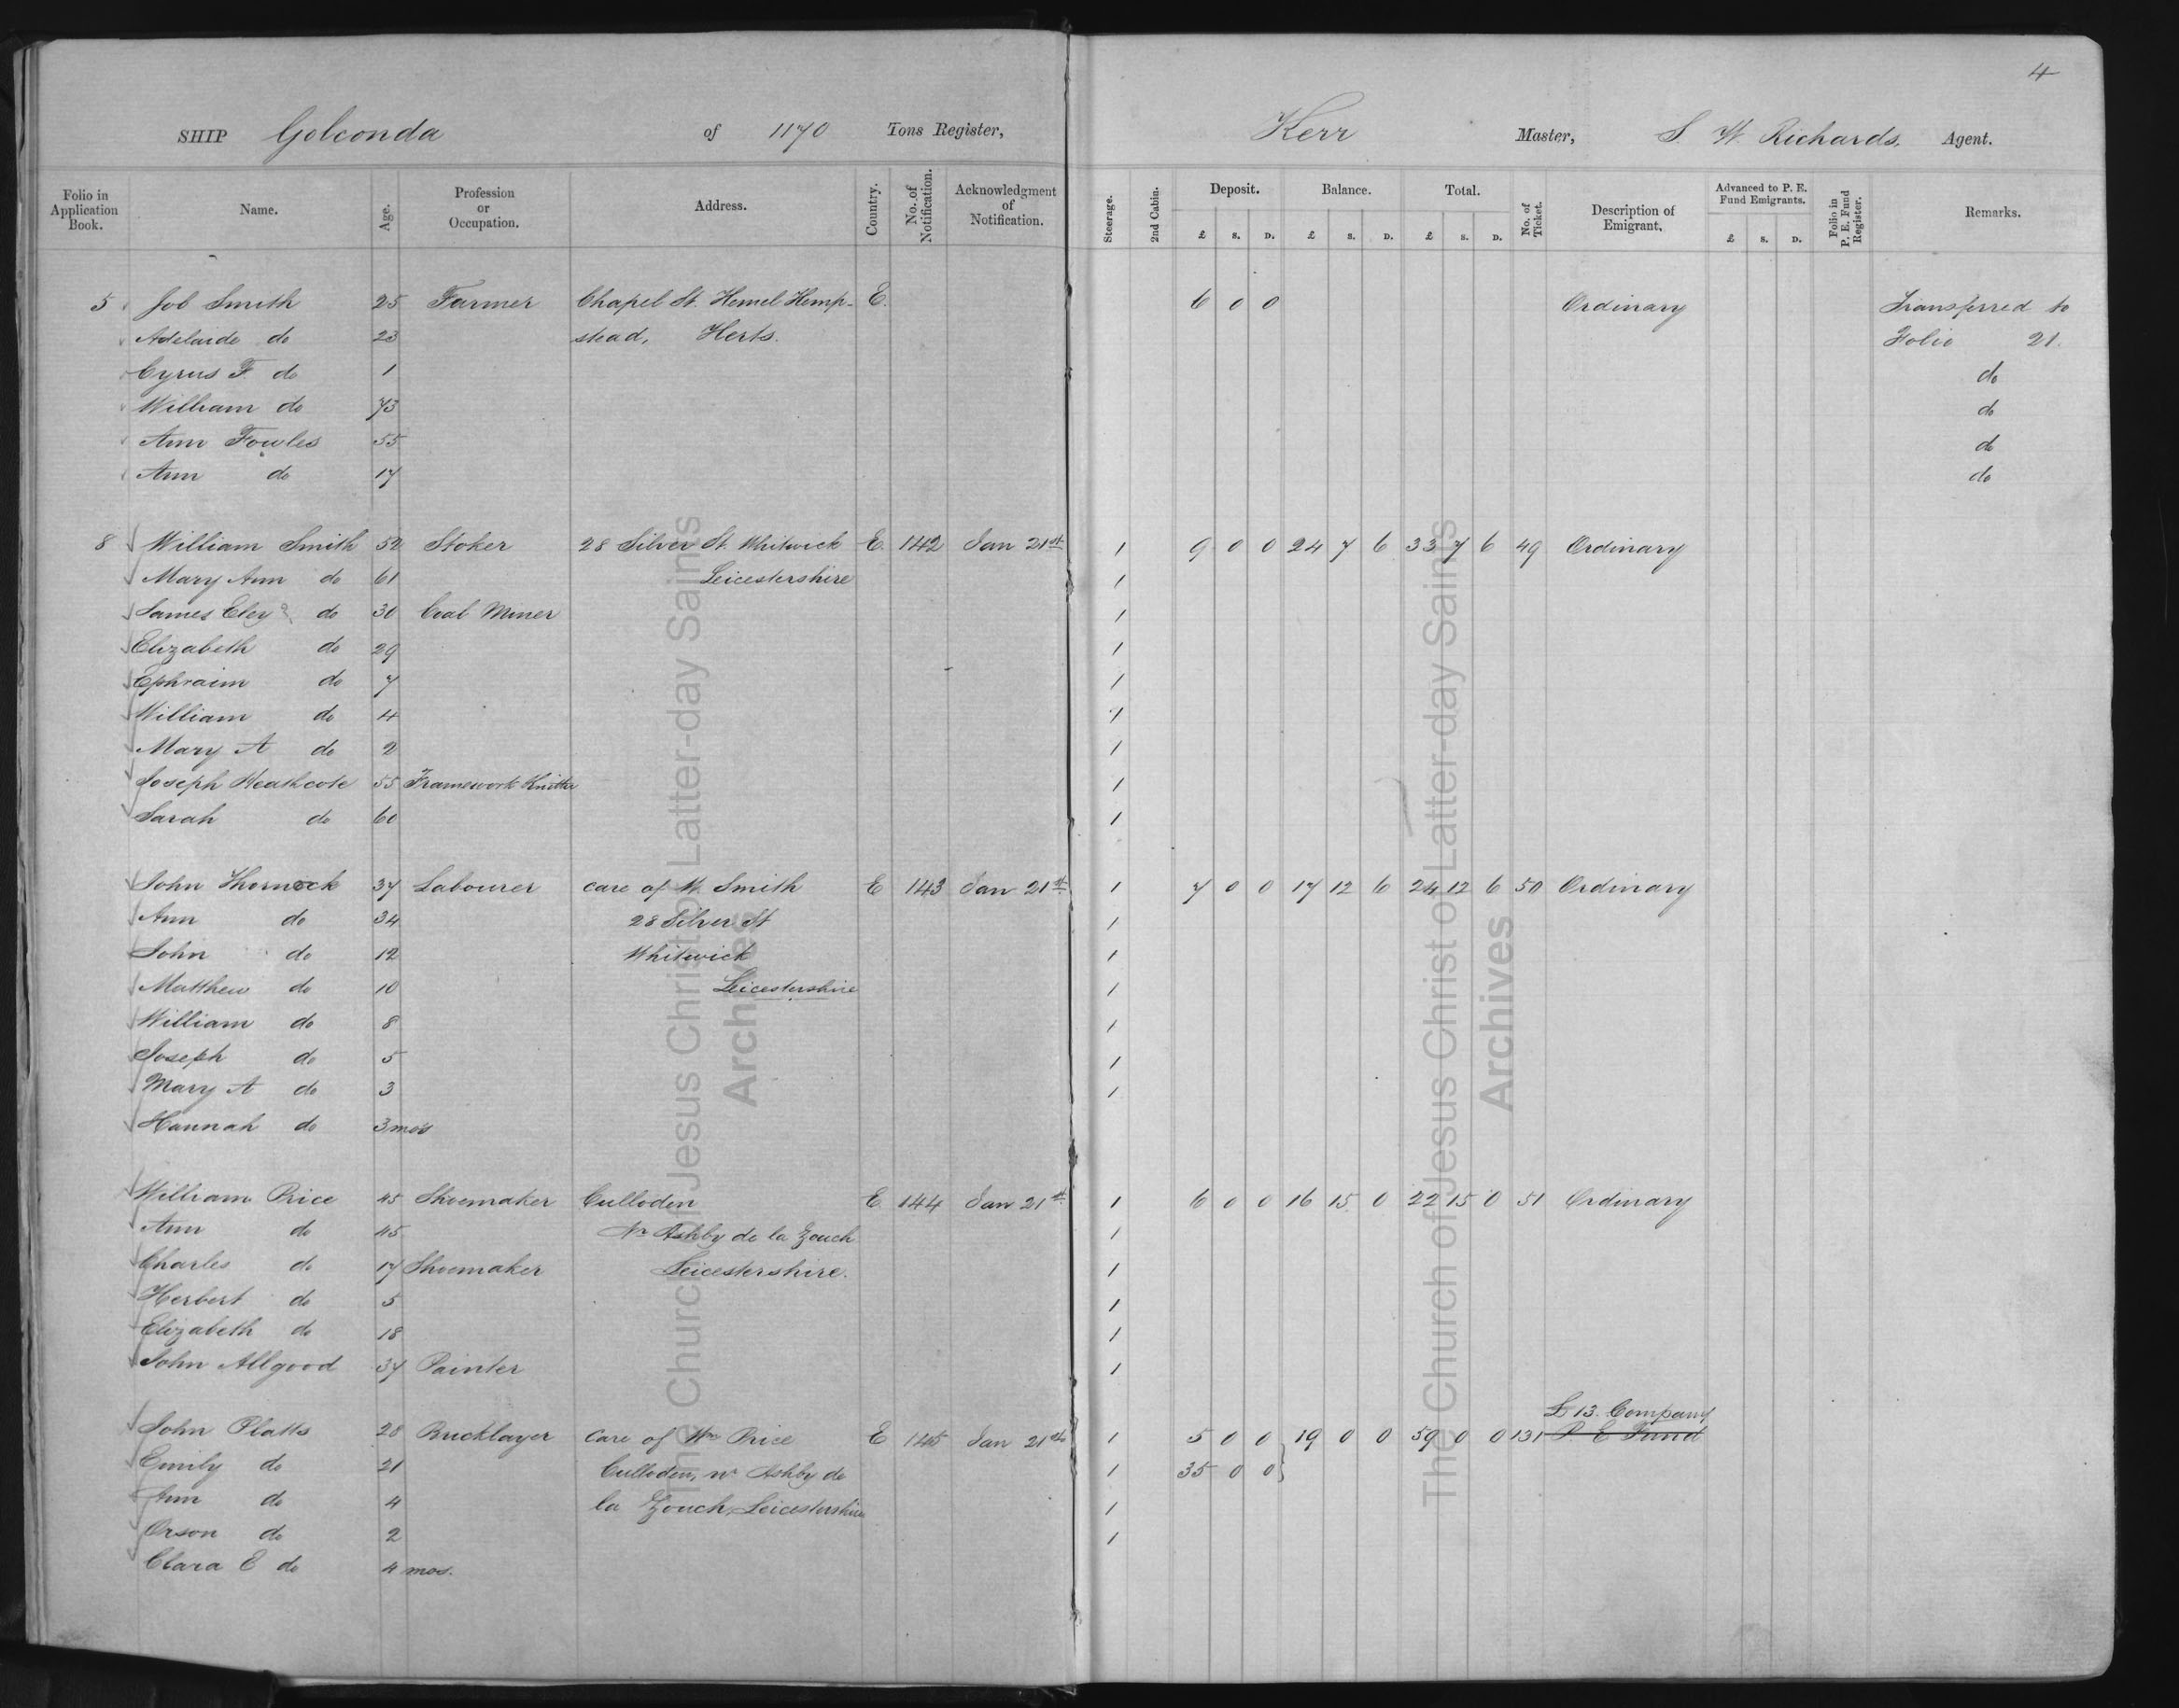 4
SHIP Golconda of 1170 Tons Register, Kerr Master, S. W. Richards, Agent.
Folio in Application Book. Name. Age. Profession or Occupation. Address. Country. No. of Notification. Acknowledgment of Notification. Steerage. 2nd Cabin. Deposit. £ S. D. Balance. £ S. D. Total. £ S. D. No. of Ticket. Description of Emigrant. Advanced to P. E. Fund Emigrants. £ S. D. Folio in P. E. Fund Register. Remarks.
5 Job Smith 25 Farmer Chapel St. Hemel Hemp- E. 6 0 0 Ordinary Transferred to
Adelaide do 23 stead, Herts. Folio 21.
Cyrus F. do 1 do
William do 73 do
Ann Fowles 55 do
Ann do 17 do
8 William Smith 52 Stoker 28 Silver St. Whitwick E. 142 Jan 21st 1 9 0 0 24 7 6 33 7 6 49 Ordinary
Mary Ann do 61 Leicestershire 1
James Eley do 30 Coal Miner 1
Elizabeth do 29 1
Ephraim do 7 1
William do 4 1
Mary A do 2 1
Joseph Heathcote 55 Framework Knitter 1
Sarah do 60 1
John Thornock 37 Labourer care of W. Smith E 143 Jan 21st 1 7 0 0 17 12 6 24 12 6 50 Ordinary
Ann do 34 28 Silver St 1
John do 12 Whitwick 1
Matthew do 10 Leicestershire 1
William do 8 1
Joseph do 5 1
Mary A do 3 1
Hannah do 3 mos
William Price 45 Shoemaker Culloden E 144 Jan 21st 1 6 0 0 16 15 0 22 15 0 51 Ordinary
Ann do 45 Nr Ashby de la Zouch 1
Charles do 17 Shoemaker Leicestershire. 1
Herbert do 5 1
Elizabeth do 18 1
John Allgood 37 Painter 1
£13. Company
John Platts 28 Bricklayer Care of Wm Price E 145 Jan 21st 1 5 0 0 19 0 0 59 0 0 131 P. E Fund
Emily do 21 Culloden, nr Ashby de 1 35 0 0
Ann do 4 la Zouch, Leicestershire 1
Orson do 2 1
Clara E do 4 mos.
The Church of Jesus Christ of Latter-day Saints
Archives
The Church of Jesus Christ of Latter-day Saints
Archives